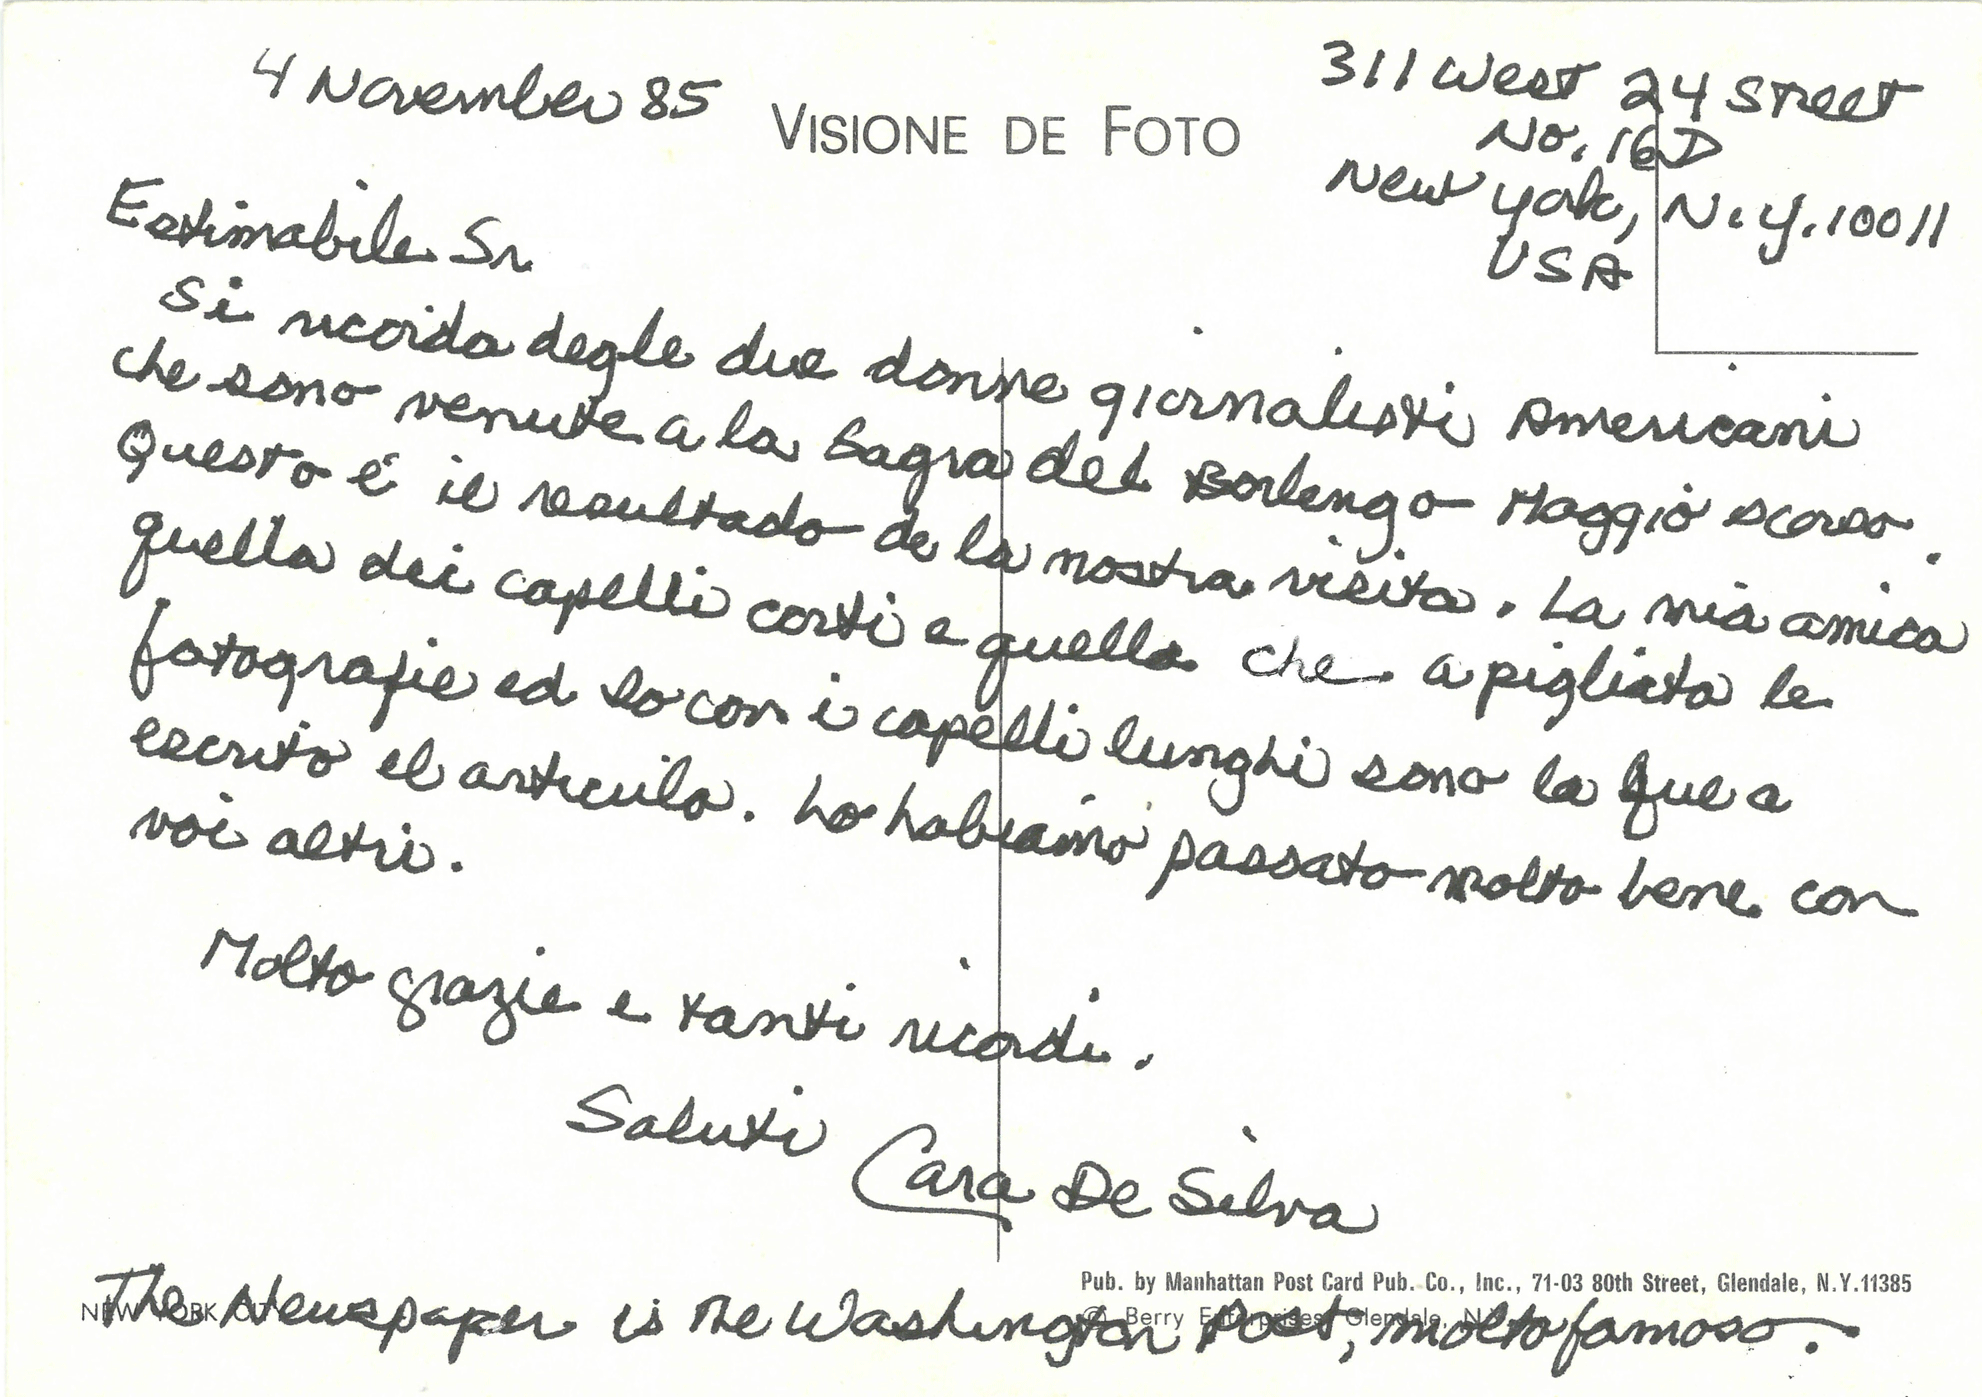 4 November 85
VISIONE DE FOTO
311 West 24 Street
No. 16D
New York, N.Y. 10011
USA
Estimabile Sr.
Si ricorda degle due donne giornalisti Americani
che sono venute a la Sagra del Borlengo Maggio scorso.
Questo é il resultado de la nostra visita. La mia amica
quella dei capelli corti e quella che a pigliato le
fotografie ed Io con i capelli lunghi sono la que a
escrito el articulo. Lo habiamo passato molto bene con
voi altri.
Molto grazie e tanti ricordi.
Saluti Cara De Silva
Pub. by Manhattan Post Card Pub. Co., Inc., 71-03 80th Street, Glendale, N.Y. 11385
NEW YORK CITY
© Berry Enterprises, Glendale, N.Y.
The Newspaper is The Washington Post, molto famoso.